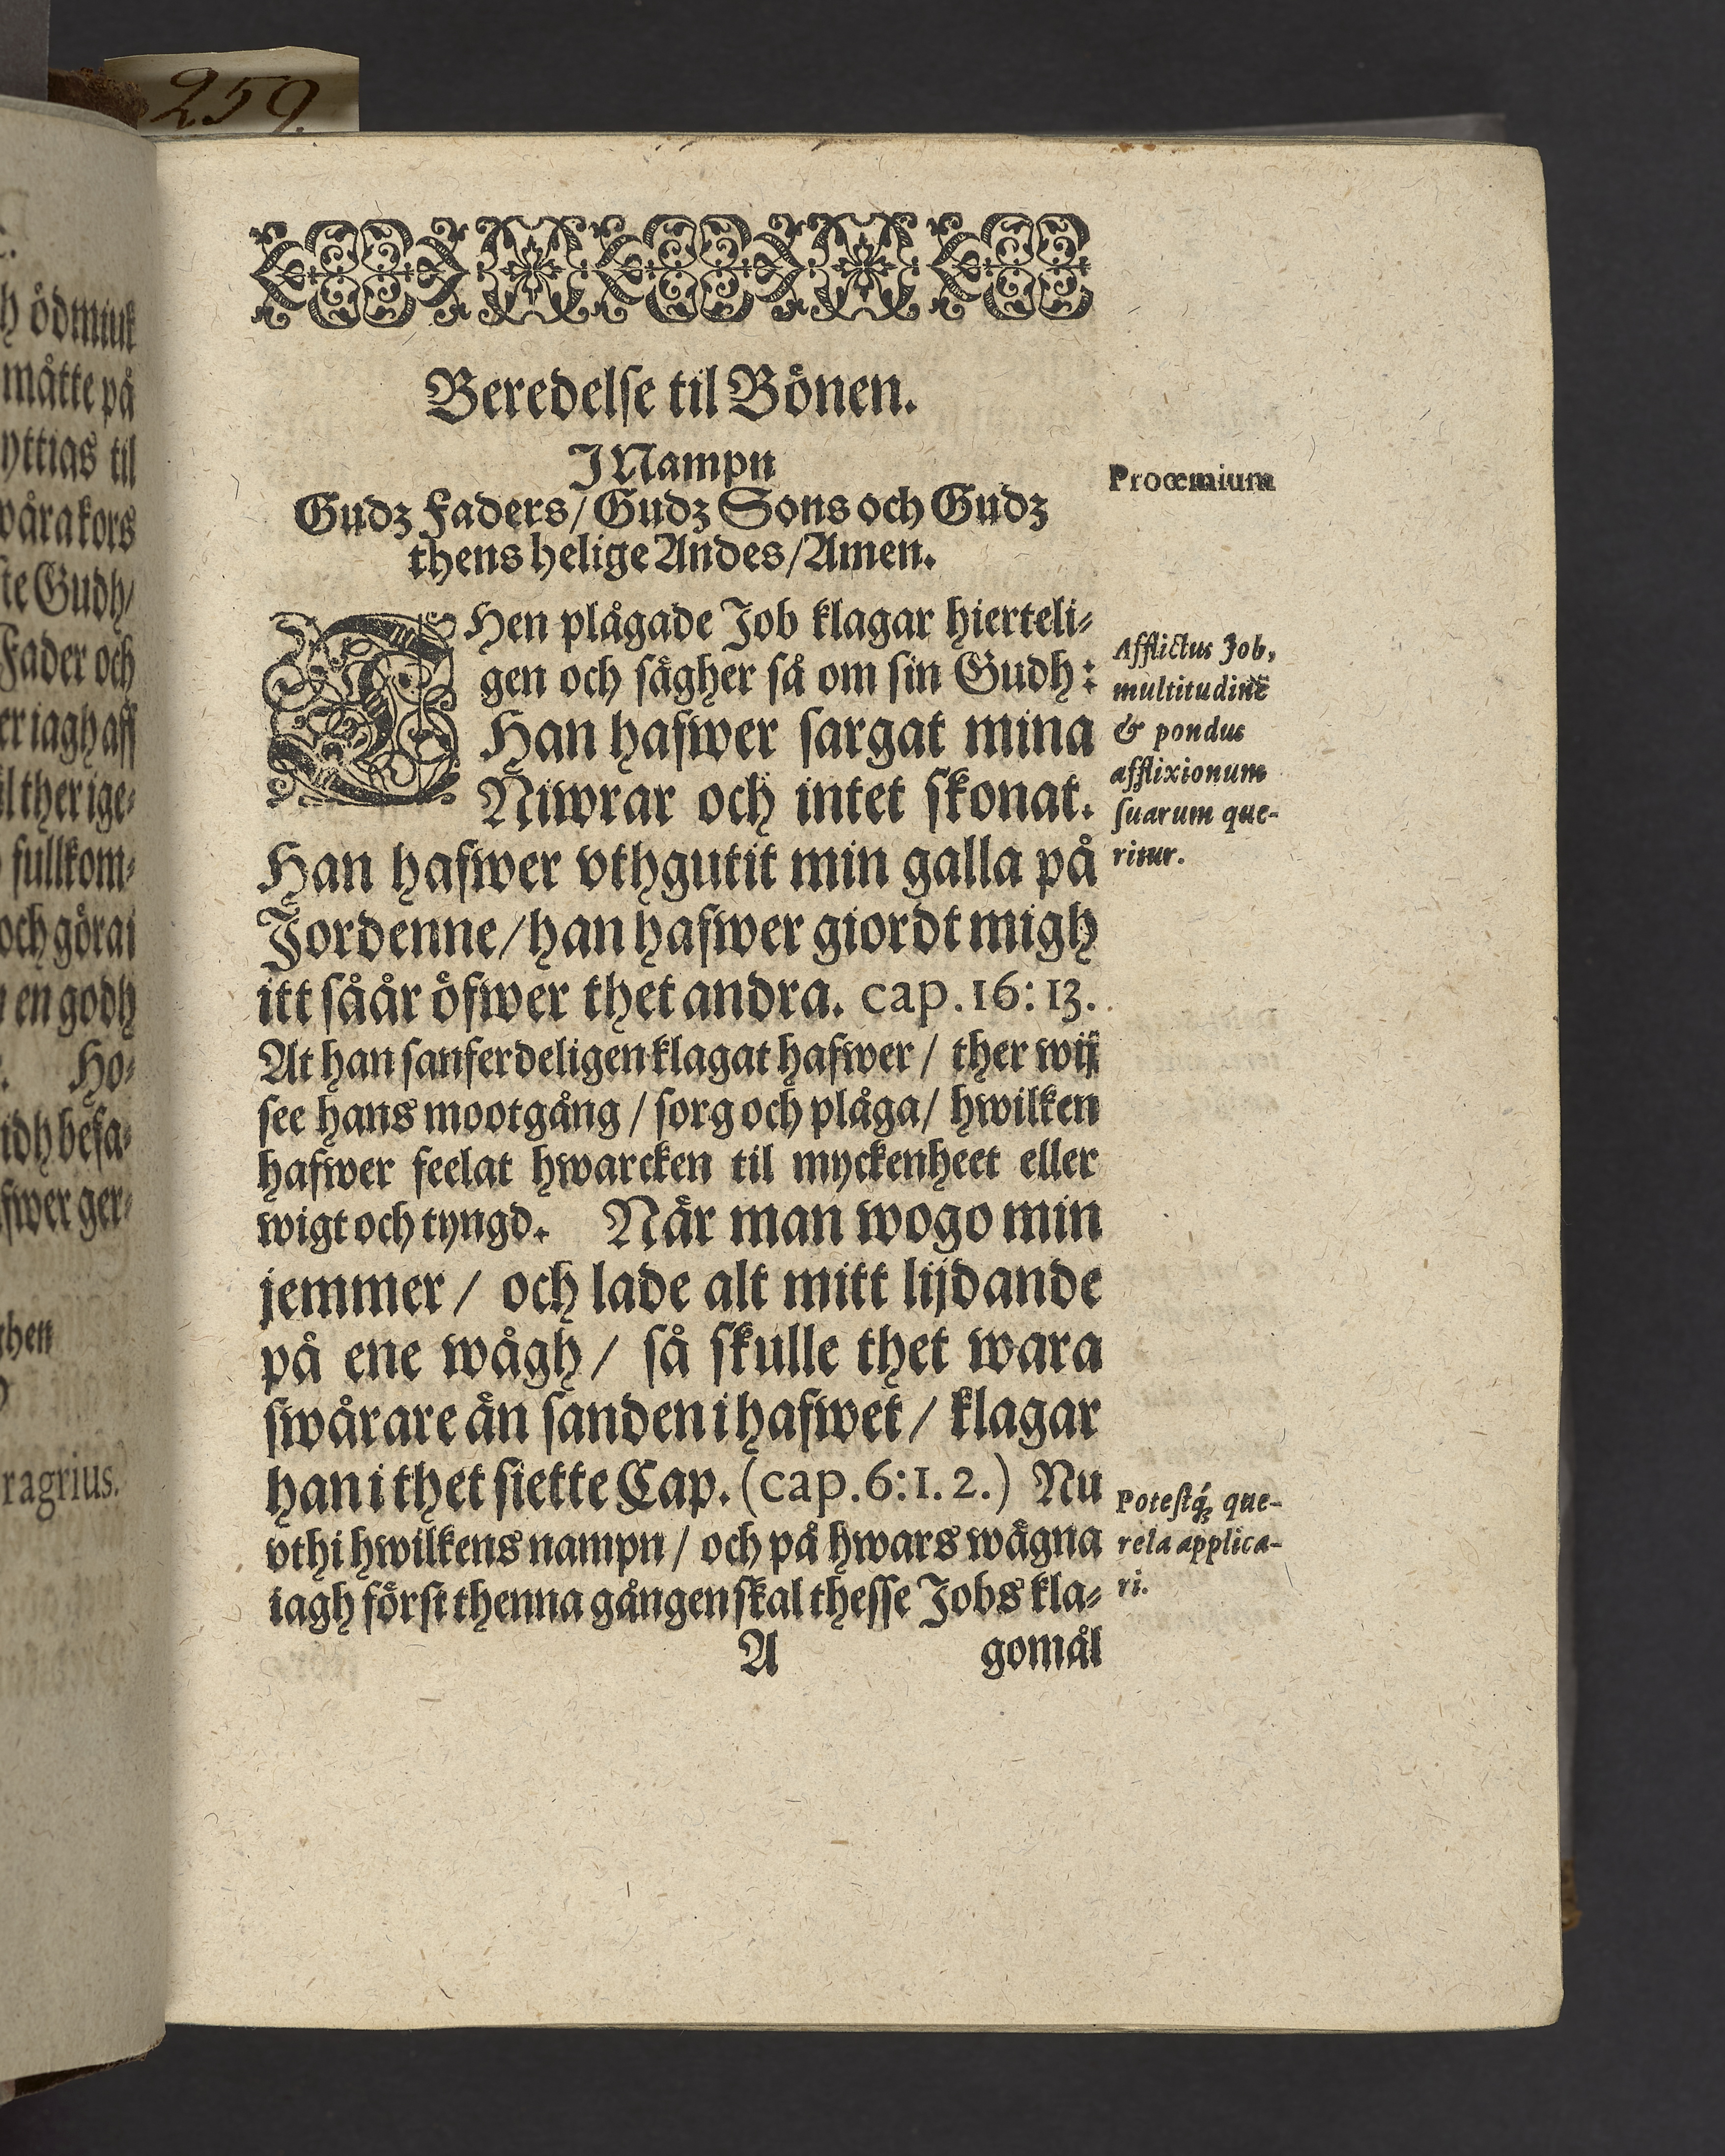 259.
h ödmiuk
måtte på
yttias til
wåra kors
ste Gudh/
Fader och
er iagh aff
il ther ige-
fullkom-
och göra i
en godh
Ho-
idh befa-
fwer ger-
ghen
ragrius.
Beredelse til Bönen.
J Nampn
Gudz Faders/ Gudz Sons och Gudz
thens helige Andes/ Amen.
Procemium
DHen plågade Job klagar hierteli-
gen och sägher så om sin Gudh:
Han hafwer sargat mina
Niwrar och intet skonat.
Han hafwer vthgutit min galla på
Jordenne/ han hafwer giordt migh
itt såår öfwer thet andra. cap. 16: 13.
At han sanferdeligen klagat hafwer/ ther wij
see hans mootgång/ sorg och plåga/ hwilken
hafwer feelat hwarcken til myckenheet eller
wigt och tyngd. När man wogo min
jemmer/ och lade alt mitt lijdande
på ene wågh/ så skulle thet wara
swårare än sanden i hafwet/ klagar
han i thet siette Cap. (cap. 6: 1. 2.) Nu
vthi hwilkens nampn/ och på hwars wägna
iagh först thenna gången skal thesse Jobs kla-
A gomål
Afflictus Job,
multitudinē
& pondus
afflixionum
suarum que-
ritur.
Potestq́; que-
rela applica-
ri.